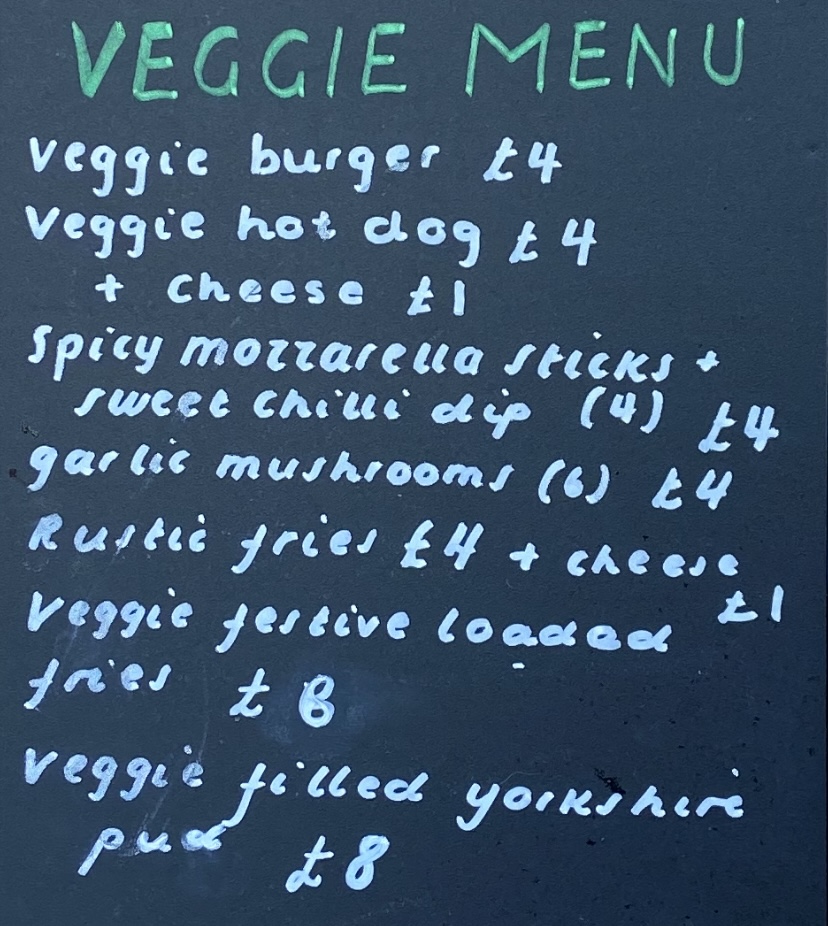 VEGGIE MENU
veggie burger £4
veggie hot dog £4
+ cheese £1
Spicy mozzarella sticks +
sweet chilli dip (4) £4
garlic mushrooms (6) £4
Rustic fries £4 + cheese
£1
Veggie festive loaded
fries £8
veggie filled yorkshire
pud £8